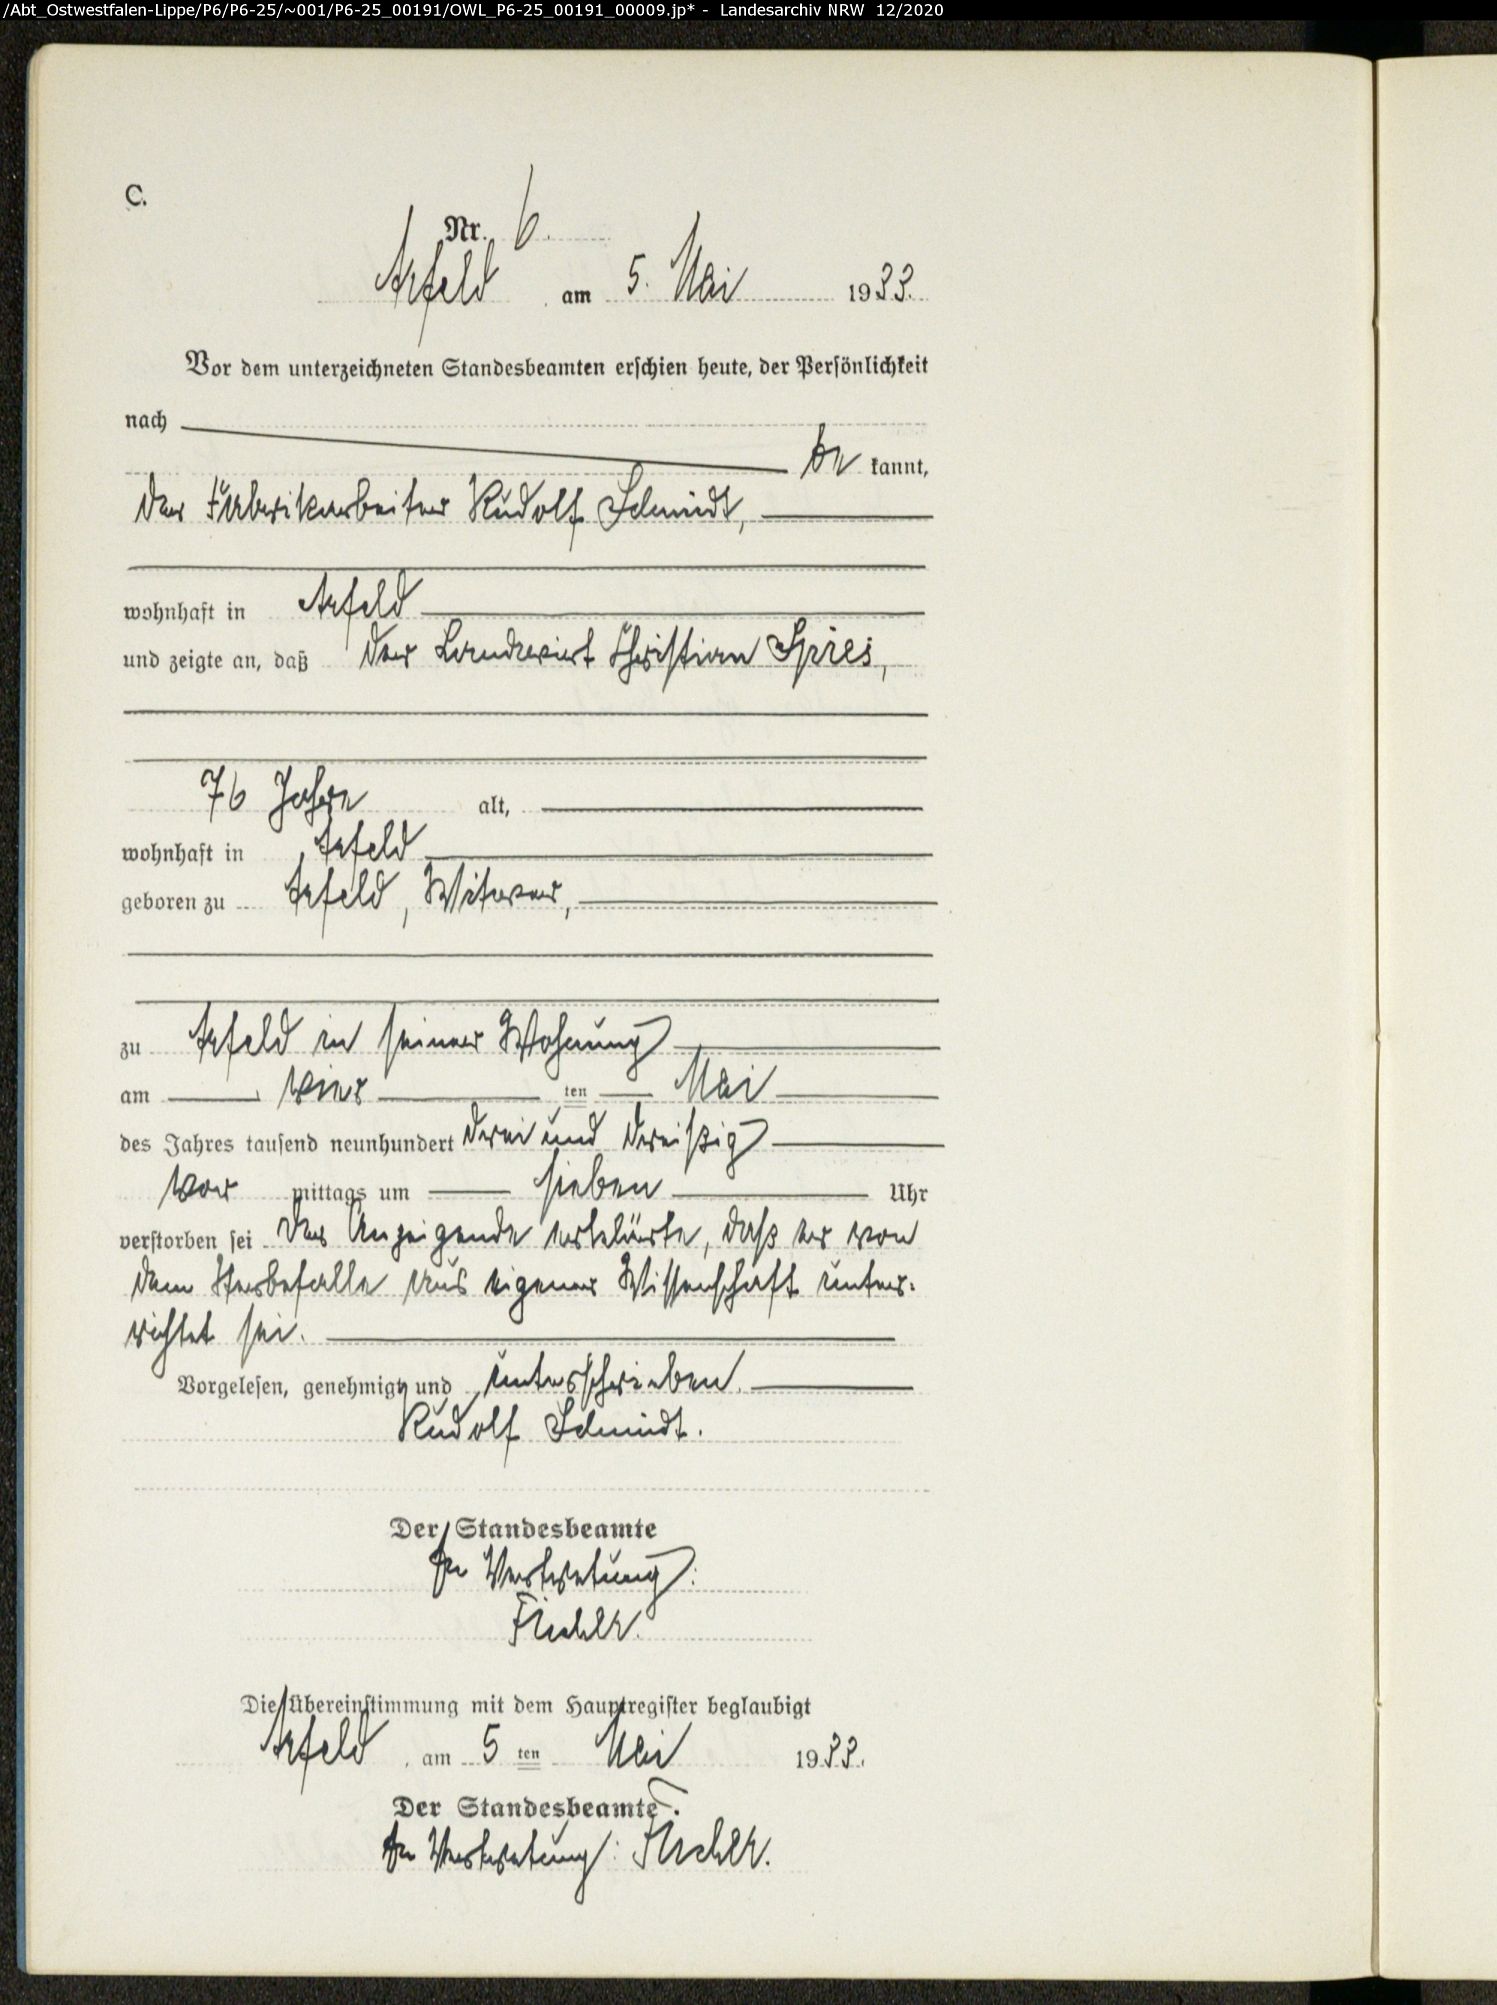 /Abt_Ostwestfalen-Lippe/P6/P6-25/~001/P6-25_00191/OWL_P6-25_00191_00009.jp* - Landesarchiv NRW 12/2020
C.
Nr. 6.
Arfeld am 5. Mai 1933.
Vor dem unterzeichneten Standesbeamten erschien heute, der Persönlichkeit
nach
be kannt,
der Fabrikarbeiter Rudolf Schmidt,
wohnhaft in Arfeld
und zeigte an, daß der Landwirt Christian Spies,
76 Jahre alt,
wohnhaft in Arfeld
geboren zu Arfeld, Witwer,
zu Arfeld in seiner Wohnung
am vier ten Mai
des Jahres tausend neunhundert drei und dreißig
vor mittags um sieben Uhr
verstorben sei Der Anzeigende erklärte, daß er von
dem Sterbefalle aus eigener Wissenschaft unter-
richtet sei.
Vorgelesen, genehmigt und unterschrieben.
Rudolf Schmidt.
Der Standesbeamte
In Vertretung:
Die Übereinstimmung mit dem Hauptregister beglaubigt
Arfeld, am 5 ten Mai 1933.
Der Standesbeamte.
In Vertretung: